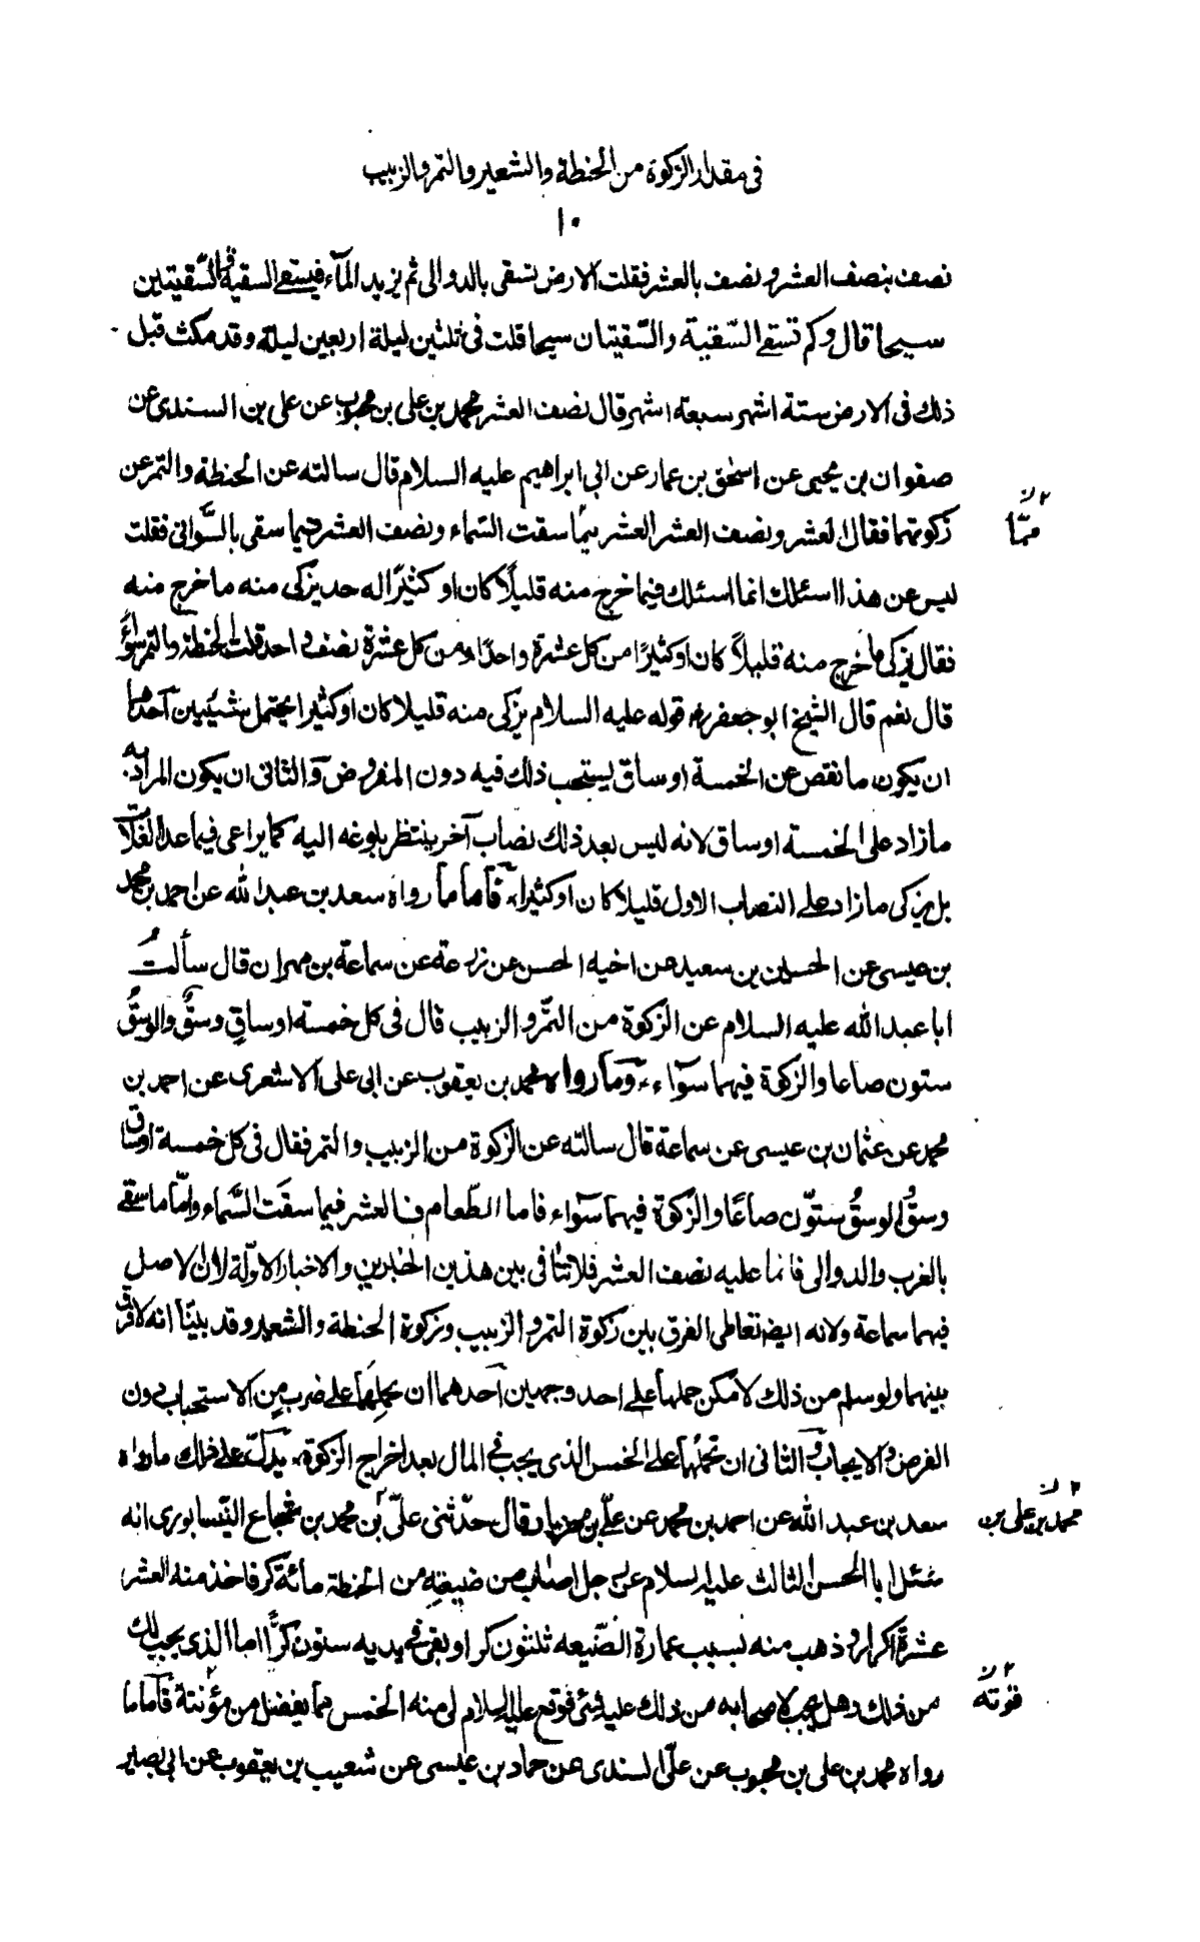 فى مقدار الزكوة من الحنطة والشعير والتمر والزبيب
١٠
نصف بنصف العشر ونصف بالعشر فقلت الارض تسقى بالدوالى ثم يزيد المآء فيسقى السقية والسّقيتين
سيحا قال وكم تسقى السّقية والسّقيتان سيحا قلت فى ثلثين ليلة اربعين ليلة وقد مكث قبل
ذلك فى الارض ستة اشهر سبعة اشهر قال نصف العشر محمد بن على بن محبوب عن على بن السندى عن
صفوان بن يحيى عن اسحق بن عمار عن ابى ابراهيم عليه السلام قال سالته عن الحنطة والتمر عن
زكوتهما فقال العشر ونصف العشر العشر ممّا سقت السّماء ونصف العشر فيما سقى بالسّوانى فقلت
ليس عن هذا اسئلك انما اسئلك فيما خرج منه قليلًا كان او كثيرًا له حد يزكى منه ما خرج منه
فقال يزكى ما خرج منه قليلاً كان او كثيرًا من كل عشرة واحدًا ومن كل عشرة نصف واحد قلت الحنطة والتمر سواءً
قال نعم قال الشيخ ابو جعفر ره قوله عليه السلام يزكى منه قليلا كان او كثيرا يحتمل شيئين احدهما
ان يكون ما نقص عن الخمسة اوساق يستحب ذلك فيه دون المفروض والثانى ان يكون المراد به
مازاد على الخمسة اوساق لانه ليس بعد ذلك نصاب آخر ينتظر بلوغه اليه كما يراعى فيما عدا الغلات
بل يزكى مازاد على النصاب الاول قليلا كان او كثيرا، فأما ما رواه سعد بن عبدالله عن احمد بن محمد
بن عيسى عن الحسين بن سعيد عن اخيه الحسن عن زرعة عن سماعة بن مهران قال سألتُ
ابا عبدالله عليه السلام عن الزكوة من التمر والزبيب قال فى كل خمسة اوساقٍ وسقٌ والوسقُ
ستون صاعا والزكوة فيهما سوآء، وما رواه محمد بن يعقوب عن ابى على الاشعرى عن احمد بن
محمد عن عثمان بن عيسى عن سماعة قال سالته عن الزكوة من الزبيب والتمر فقال فى كل خمسة اوساق
وسقٌ والوسقُ ستّون صاعًا والزكوة فيهما سوآء فاما الطّعام فالعشر فيما سقت السّماء وامّا ما سقى
بالغرب والدوالى فانما عليه نصف العشر فلا تنافى بين هذين الخبرين والاخبار الاوّلة لان الاصل
فيهما سماعة ولانه ايضا تعاطى الفرق بين زكوة التمر والزبيب وزكوة الحنطة والشعير وقد بينّا انه لا فرق
بينهما ولو سلم من ذلك لامكن حملها على احد وجهين احدهما ان نحملها على ضرب من الاستحباب دون
الفرض والايجاب والثانى ان نحملها على الخمس الذى يجب فى المال بعد اخراج الزكوة، يدلّ على ذلك ما رواه
سعد بن عبدالله عن احمد بن محمد عن علىّ بن مهزيار قال حدّثنى علىّ بن محمد بن شجاع النيّسابورى انه
سئل ابا الحسن الثالث عليه السلام عن رجل اصاب من ضيعته من الحنطة مائة كر فاخذ منه العشر
عشرة اكرار وذهب منه بسبب عمارة الضّيعه ثلثون كرا وبقى فى يديه ستون كرًّا ما الذى يجب لك
من ذلك وهل يجب لاصحابه من ذلك عليه شئ فوقع عليه السلام لى منه الخمس مما يفضل من مؤنته فأما ما
رواه محمد بن على بن محبوب عن علىّ السندى عن حماد بن عيسى عن شعيب بن يعقوب عن ابى بصير
فيمّا
محمد بن على بن
قوته